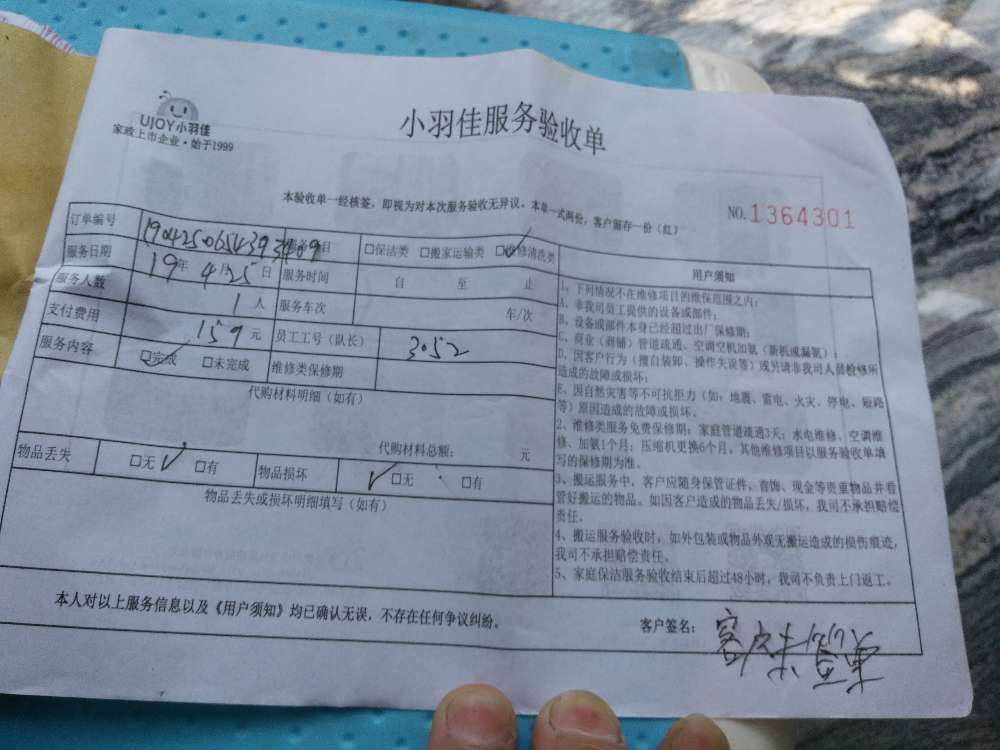 UIOY小羽佳
家政上市企业·始于1999
小羽佳服务验收单
本验收单一经核签,即视为对本次服务验收无异议。本单一式两份,客户留存一份(红)
NO.1364301
订单编号 1904250654393409 服务项目 □保洁类 □搬家运输类 □维修清洗类
服务日期 19年 4月25日 服务时间 自 至 止
服务人数 1人 服务车次 车/次
支付费用 159元 员工工号(队长) 3052
服务内容 □完成 □未完成 维修类保修期
代购材料明细(如有)
代购材料总额: 元
物品丢失 □无 □有 物品损坏 □无 □有
物品丢失或损坏明细填写(如有)
用户须知
1、下列情况不在维修项目的维保范围之内:
A、非我司员工提供的设备或部件;
B、设备或部件本身已经超过出厂保修期;
C、商业(商铺)管道疏通、空调空机加氨(新机或漏氨);
D、因客户行为(擅自装卸、操作失误等)或另请非我司人员检修所
造成的故障或损坏;
E、因自然灾害等不可抗拒力(如:地震、雷电、火灾、停电、短路
等)原因造成的故障或损坏。
2、维修类服务免费保修期:家庭管道疏通3天;水电维修、空调维
修、加氨1个月;压缩机更换6个月。其他维修项目以服务验收单填
写的保修期为准。
3、搬运服务中,客户应随身保管证件、首饰、现金等贵重物品并看
管好搬运的物品。如因客户造成的物品丢失/损坏,我司不承担赔偿
责任。
4、搬运服务验收时,如外包装或物品外观无搬运造成的损伤痕迹,
我司不承担赔偿责任。
5、家庭保洁服务验收结束后超过48小时,我司不负责上门返工。
本人对以上服务信息以及《用户须知》均已确认无误,不存在任何争议纠纷。
客户签名: